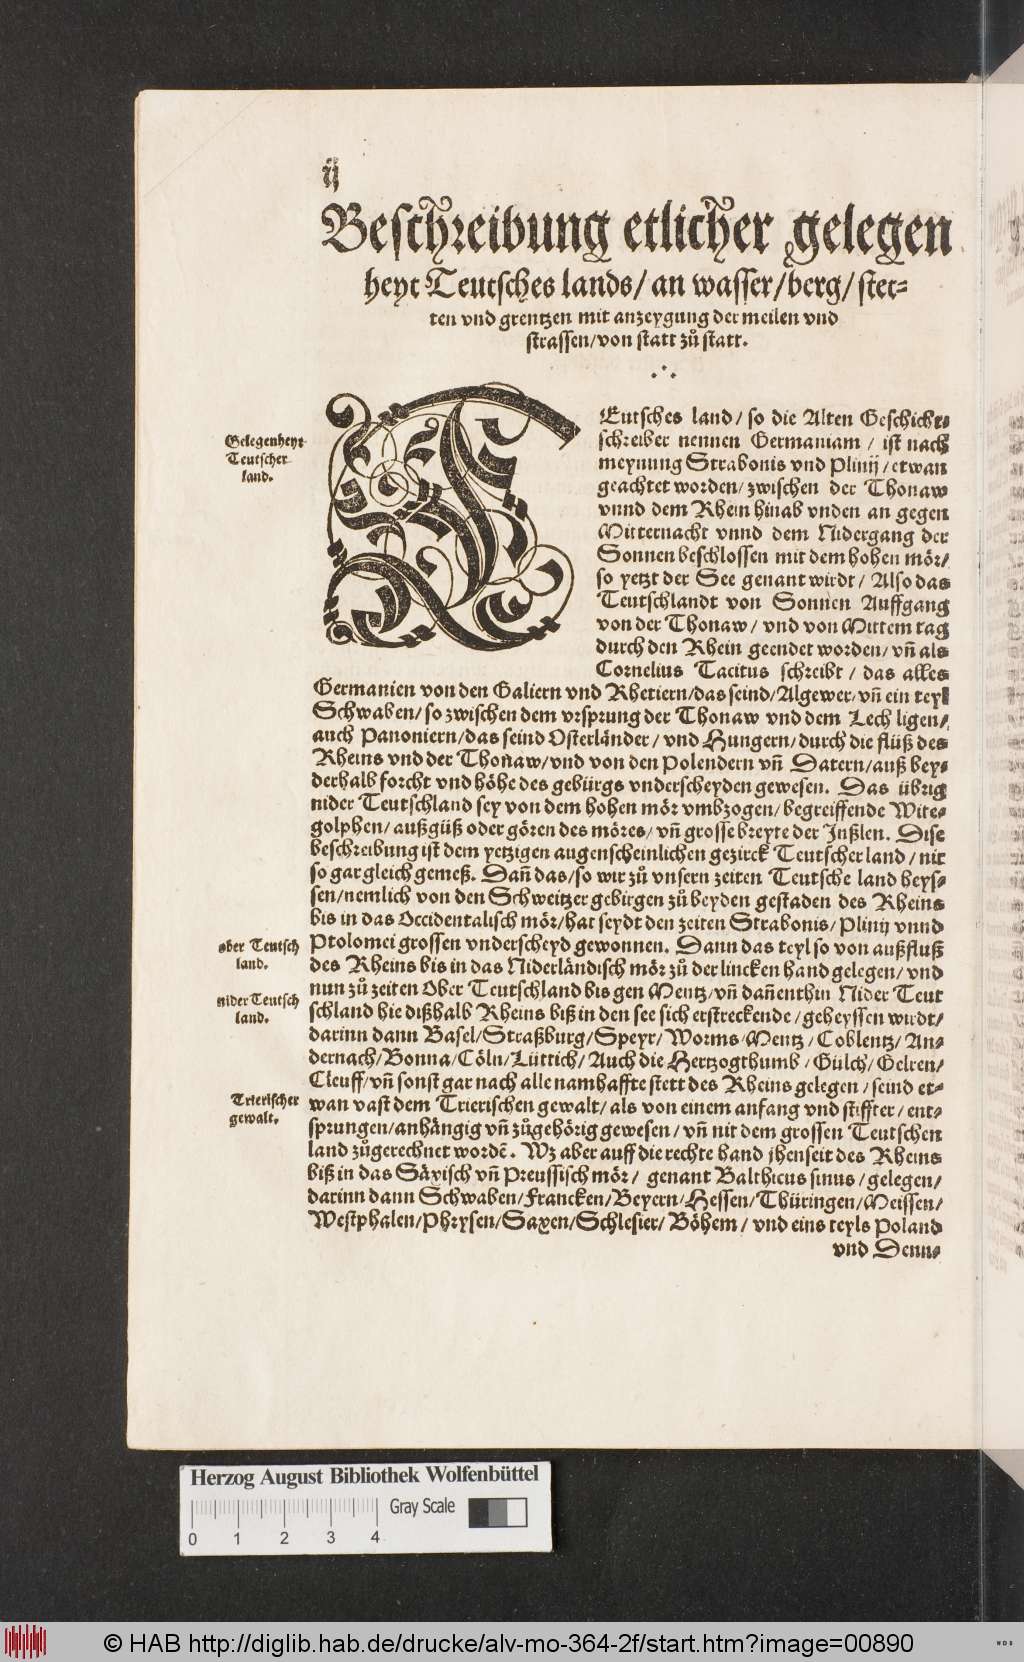 ij
Beschreibung etlicher gelegen
heyt Teutsches lands/ an wasser/berg/ stet-
ten vnd grentzen mit anzeygung der meilen vnd
strassen/von statt zů statt.
Gelegenheyt
Teutscher
land.
TEutsches land/ so die Alten Geschicht-
schreiber nennen Germaniam / ist nach
meynung Strabonis vnd Plinij/etwan
geachtet worden/ zwischen der Thonaw
vnnd dem Rhein hinab vnden an gegen
Mitternacht vnnd dem Nidergang der
Sonnen beschlossen mit dem hohen mör/
so yetzt der See genant wirdt/ Also das
Teutschlandt von Sonnen Auffgang
von der Thonaw/ vnd von Mittem tag
durch den Rhein geendet worden/ vñ als
Cornelius Tacitus schreibt / das alles
Germanien von den Galiern vnd Rhetiern/das seind/Algewer/vñ ein teyl
Schwaben/ so zwischen dem vrsprung der Thonaw vnd dem Lech ligen/
auch Panoniern/das seind Osterländer/ vnd Hungern/durch die flüß des
Rheins vnd der Thonaw/vnd von den Polendern vñ Datern/auß bey-
derhalb forcht vnd höhe des gebürgs vnderscheyden gewesen. Das übrig
nider Teutschland sey von dem hohen mör vmbzogen/begreiffende Wite-
golphen/ außgüß oder gören des möres/ vñ grosse breyte der Jnßlen. Dise
beschreibung ist dem yetzigen augenscheinlichen gezirck Teutscher land/ nit
so gar gleich gemeß. Dañ das/so wir zů vnsern zeiten Teutsche land heys-
sen/nemlich von den Schweitzer gebirgen zů beyden gestaden des Rheins
bis in das Occidentalisch mör/hat seydt den zeiten Strabonis/ Plinij vnnd
Ptolomei grossen vnderscheyd gewonnen. Dann das teyl so von außfluß
des Rheins bis in das Niderländisch mör zů der lincken hand gelegen/ vnd
nun zů zeiten Ober Teutschland bis gen Mentz/vñ dañenthin Nider Teut
schland hie dißhalb Rheins biß in den see sich erstreckende/geheyssen wirdt/
darinn dann Basel/Straßburg/Speyr/Worms/Mentz/Coblentz/ An-
dernach/Bonna/Cöln/Lüttich/Auch die Hertzogthumb/Gülch/Gelren/
Cleuff/vñ sonst gar nach alle namhaffte stett des Rheins gelegen/seind et-
wan vast dem Trierischen gewalt/ als von einem anfang vnd stiffter/ ent-
sprungen/anhängig vñ zůgehörig gewesen/ vñ nit dem grossen Teutschen
land zůgerechnet wordē. Wz aber auff die rechte hand jhenseit des Rheins
biß in das Säxisch vñ Preussisch mör/ genant Balthicus sinus/gelegen/
darinn dann Schwaben/Francken/Beyern/Hessen/Thüringen/Meissen/
Westphalen/Phrysen/Saxen/Schlesier/ Böhem/ vnd eins teyls Poland
vnd Denn-
ober Teutsch
land.
nider Teutsch
land.
Trierischer
gewalt.
Herzog August Bibliothek Wolfenbüttel
0 1 2 3 4 Gray Scale
© HAB http://diglib.hab.de/drucke/alv-mo-364-2f/start.htm?image=00890